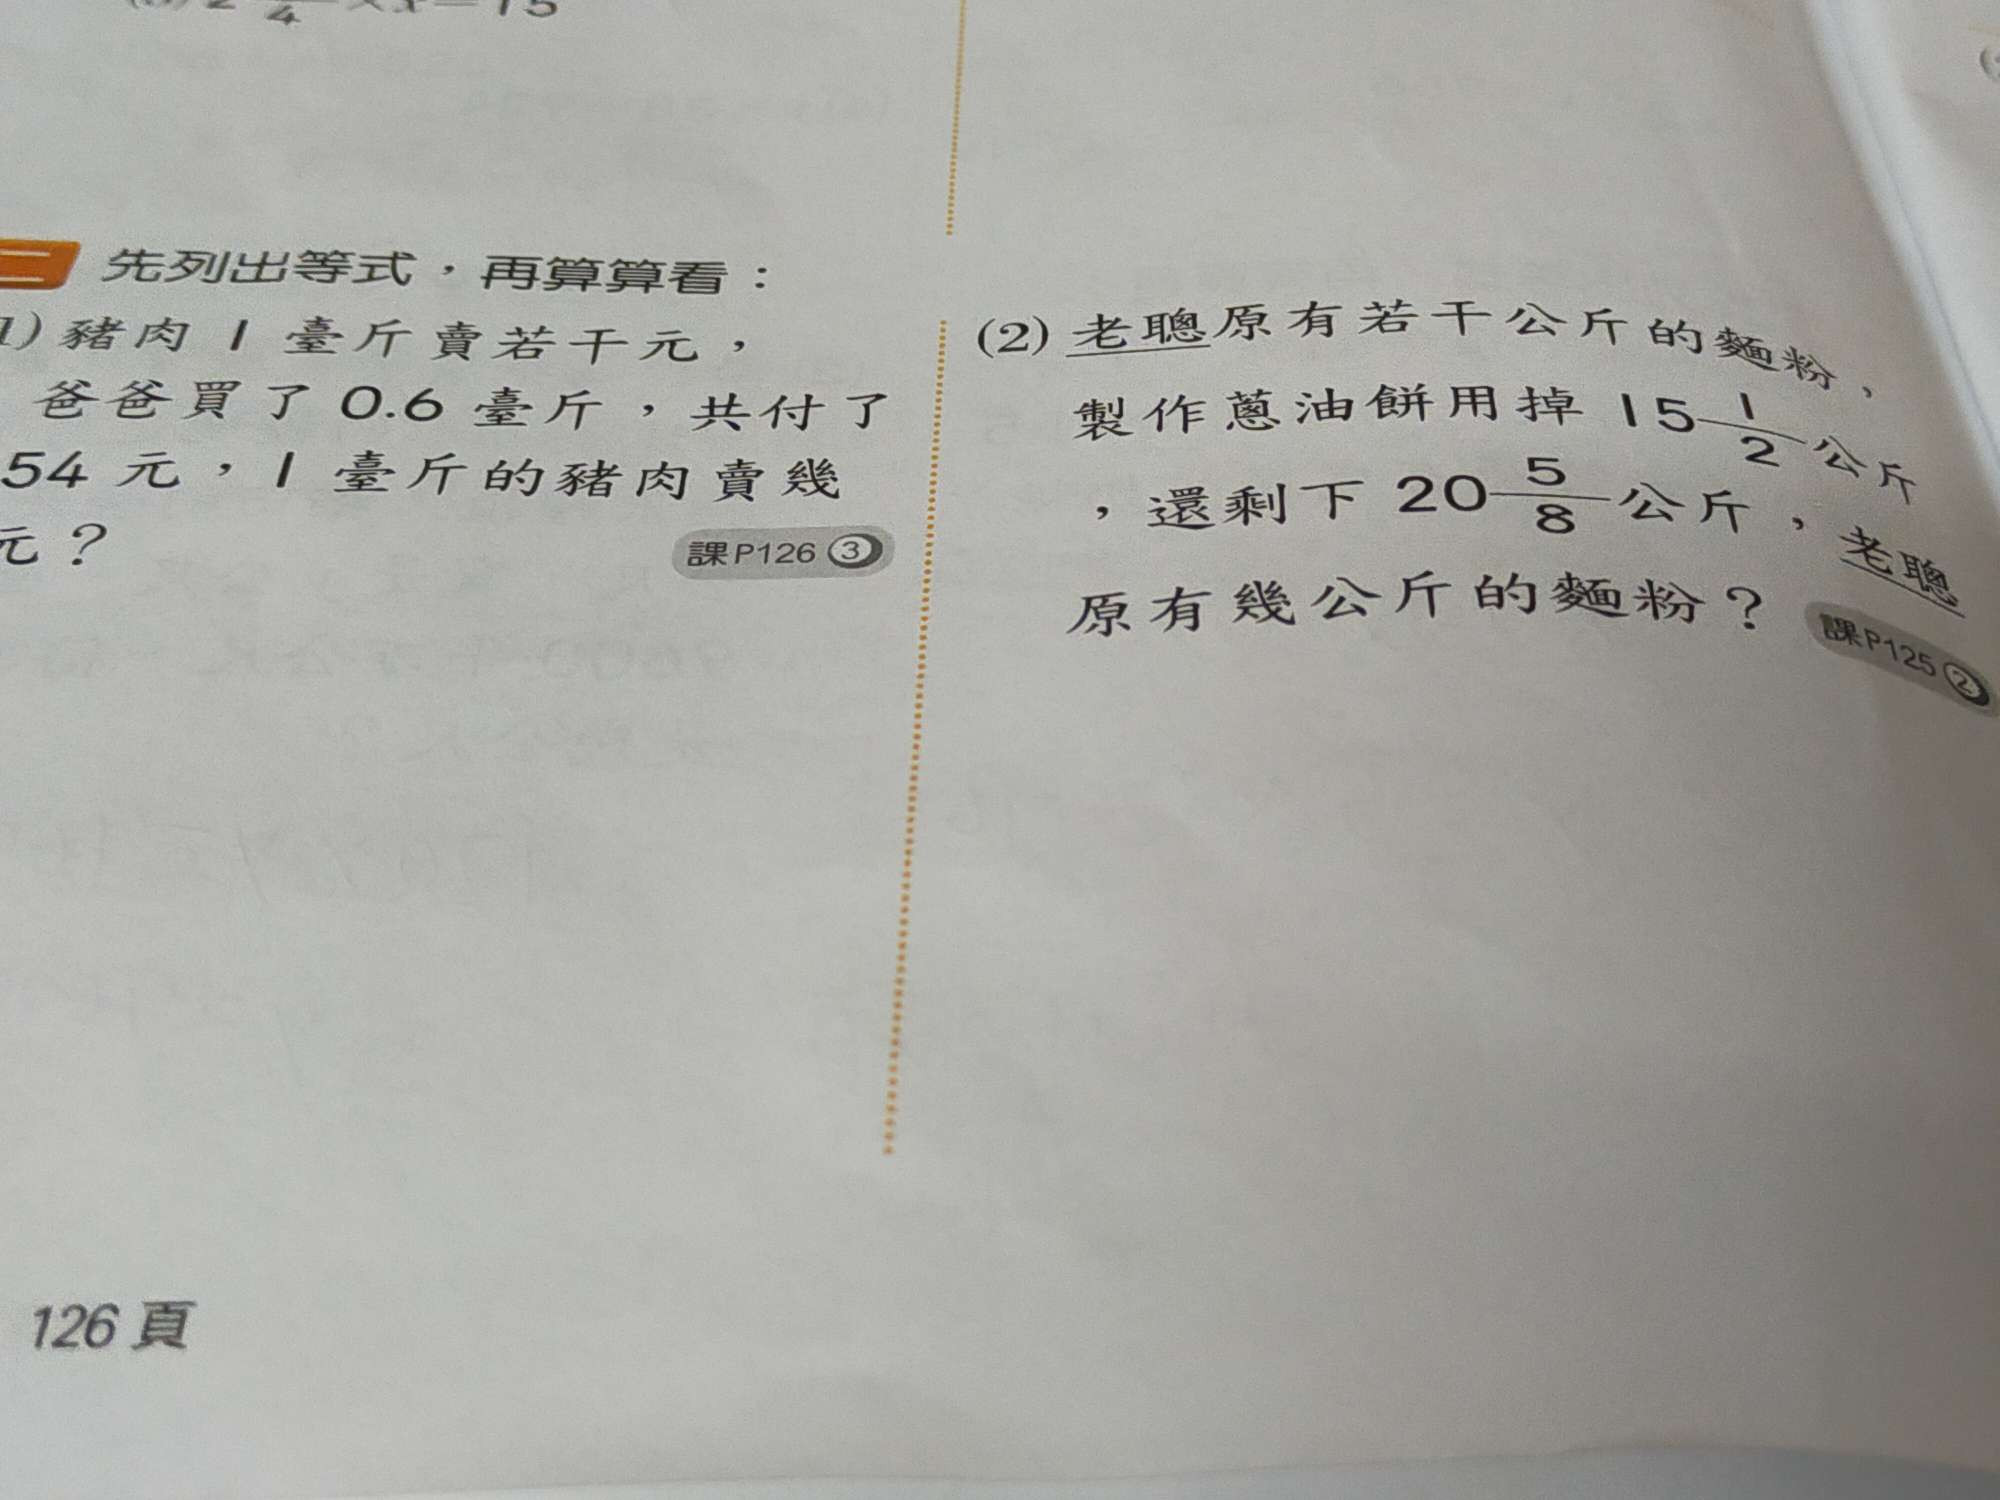 ×x=15
4
二 先列出等式，再算算看：
1) 豬肉 1 臺斤賣若干元，
爸爸買了 0.6 臺斤，共付了
54 元，1 臺斤的豬肉賣幾
元？
課P126 ③
(2) 老聰原有若干公斤的麵粉，
製作蔥油餅用掉 15 1/2 公斤
，還剩下 20 5/8 公斤，老聰
原有幾公斤的麵粉？
課P125 ②
126 頁